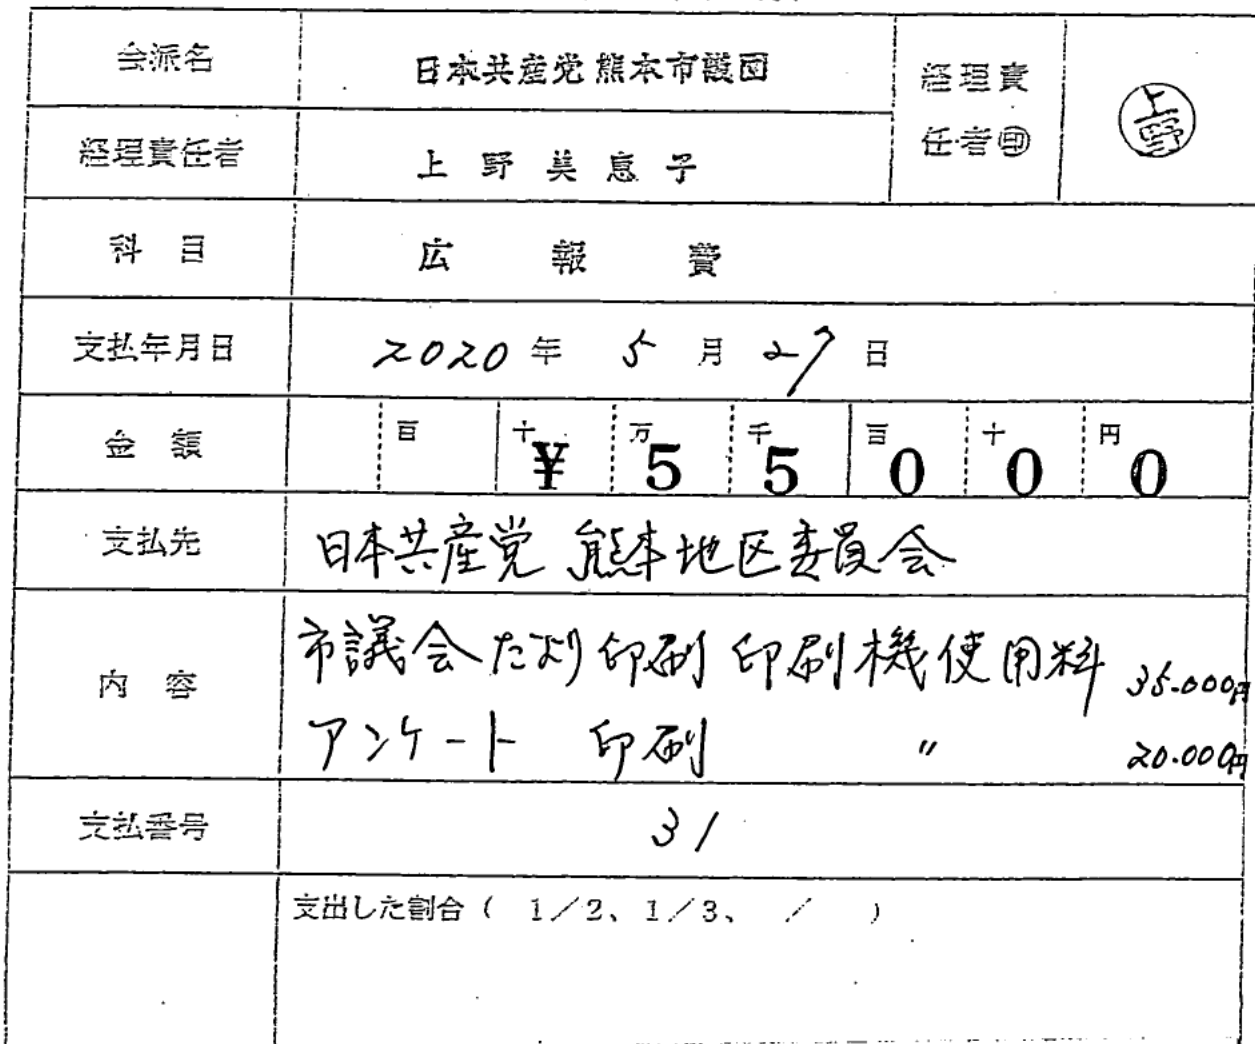 会派名 日本共産党 熊本市議団 経理責任者㊞ 上野
経理責任者 上野美恵子
科目 広報費
支払年月日 2020年 5月 27日
金額 百 十 万 千 百 十 円 ¥55000
支払先 日本共産党 熊本地区委員会
内容 市議会だより印刷 印刷機使用料 35.000円
アンケート 印刷 〃 20.000円
支払番号 31
支出した割合( 1/2、1/3、 / )